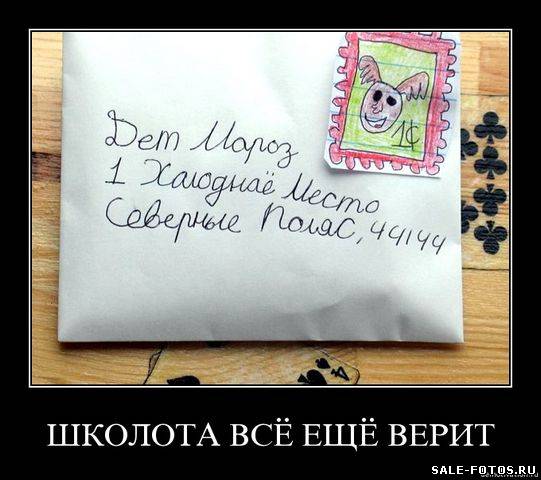 Дет Мароз
1 Халоднаё Место
Северные ПоляС, 44144
1¢
ШКОЛОТА ВСЁ ЕЩЁ ВЕРИТ
SALE-FOTOS.RU